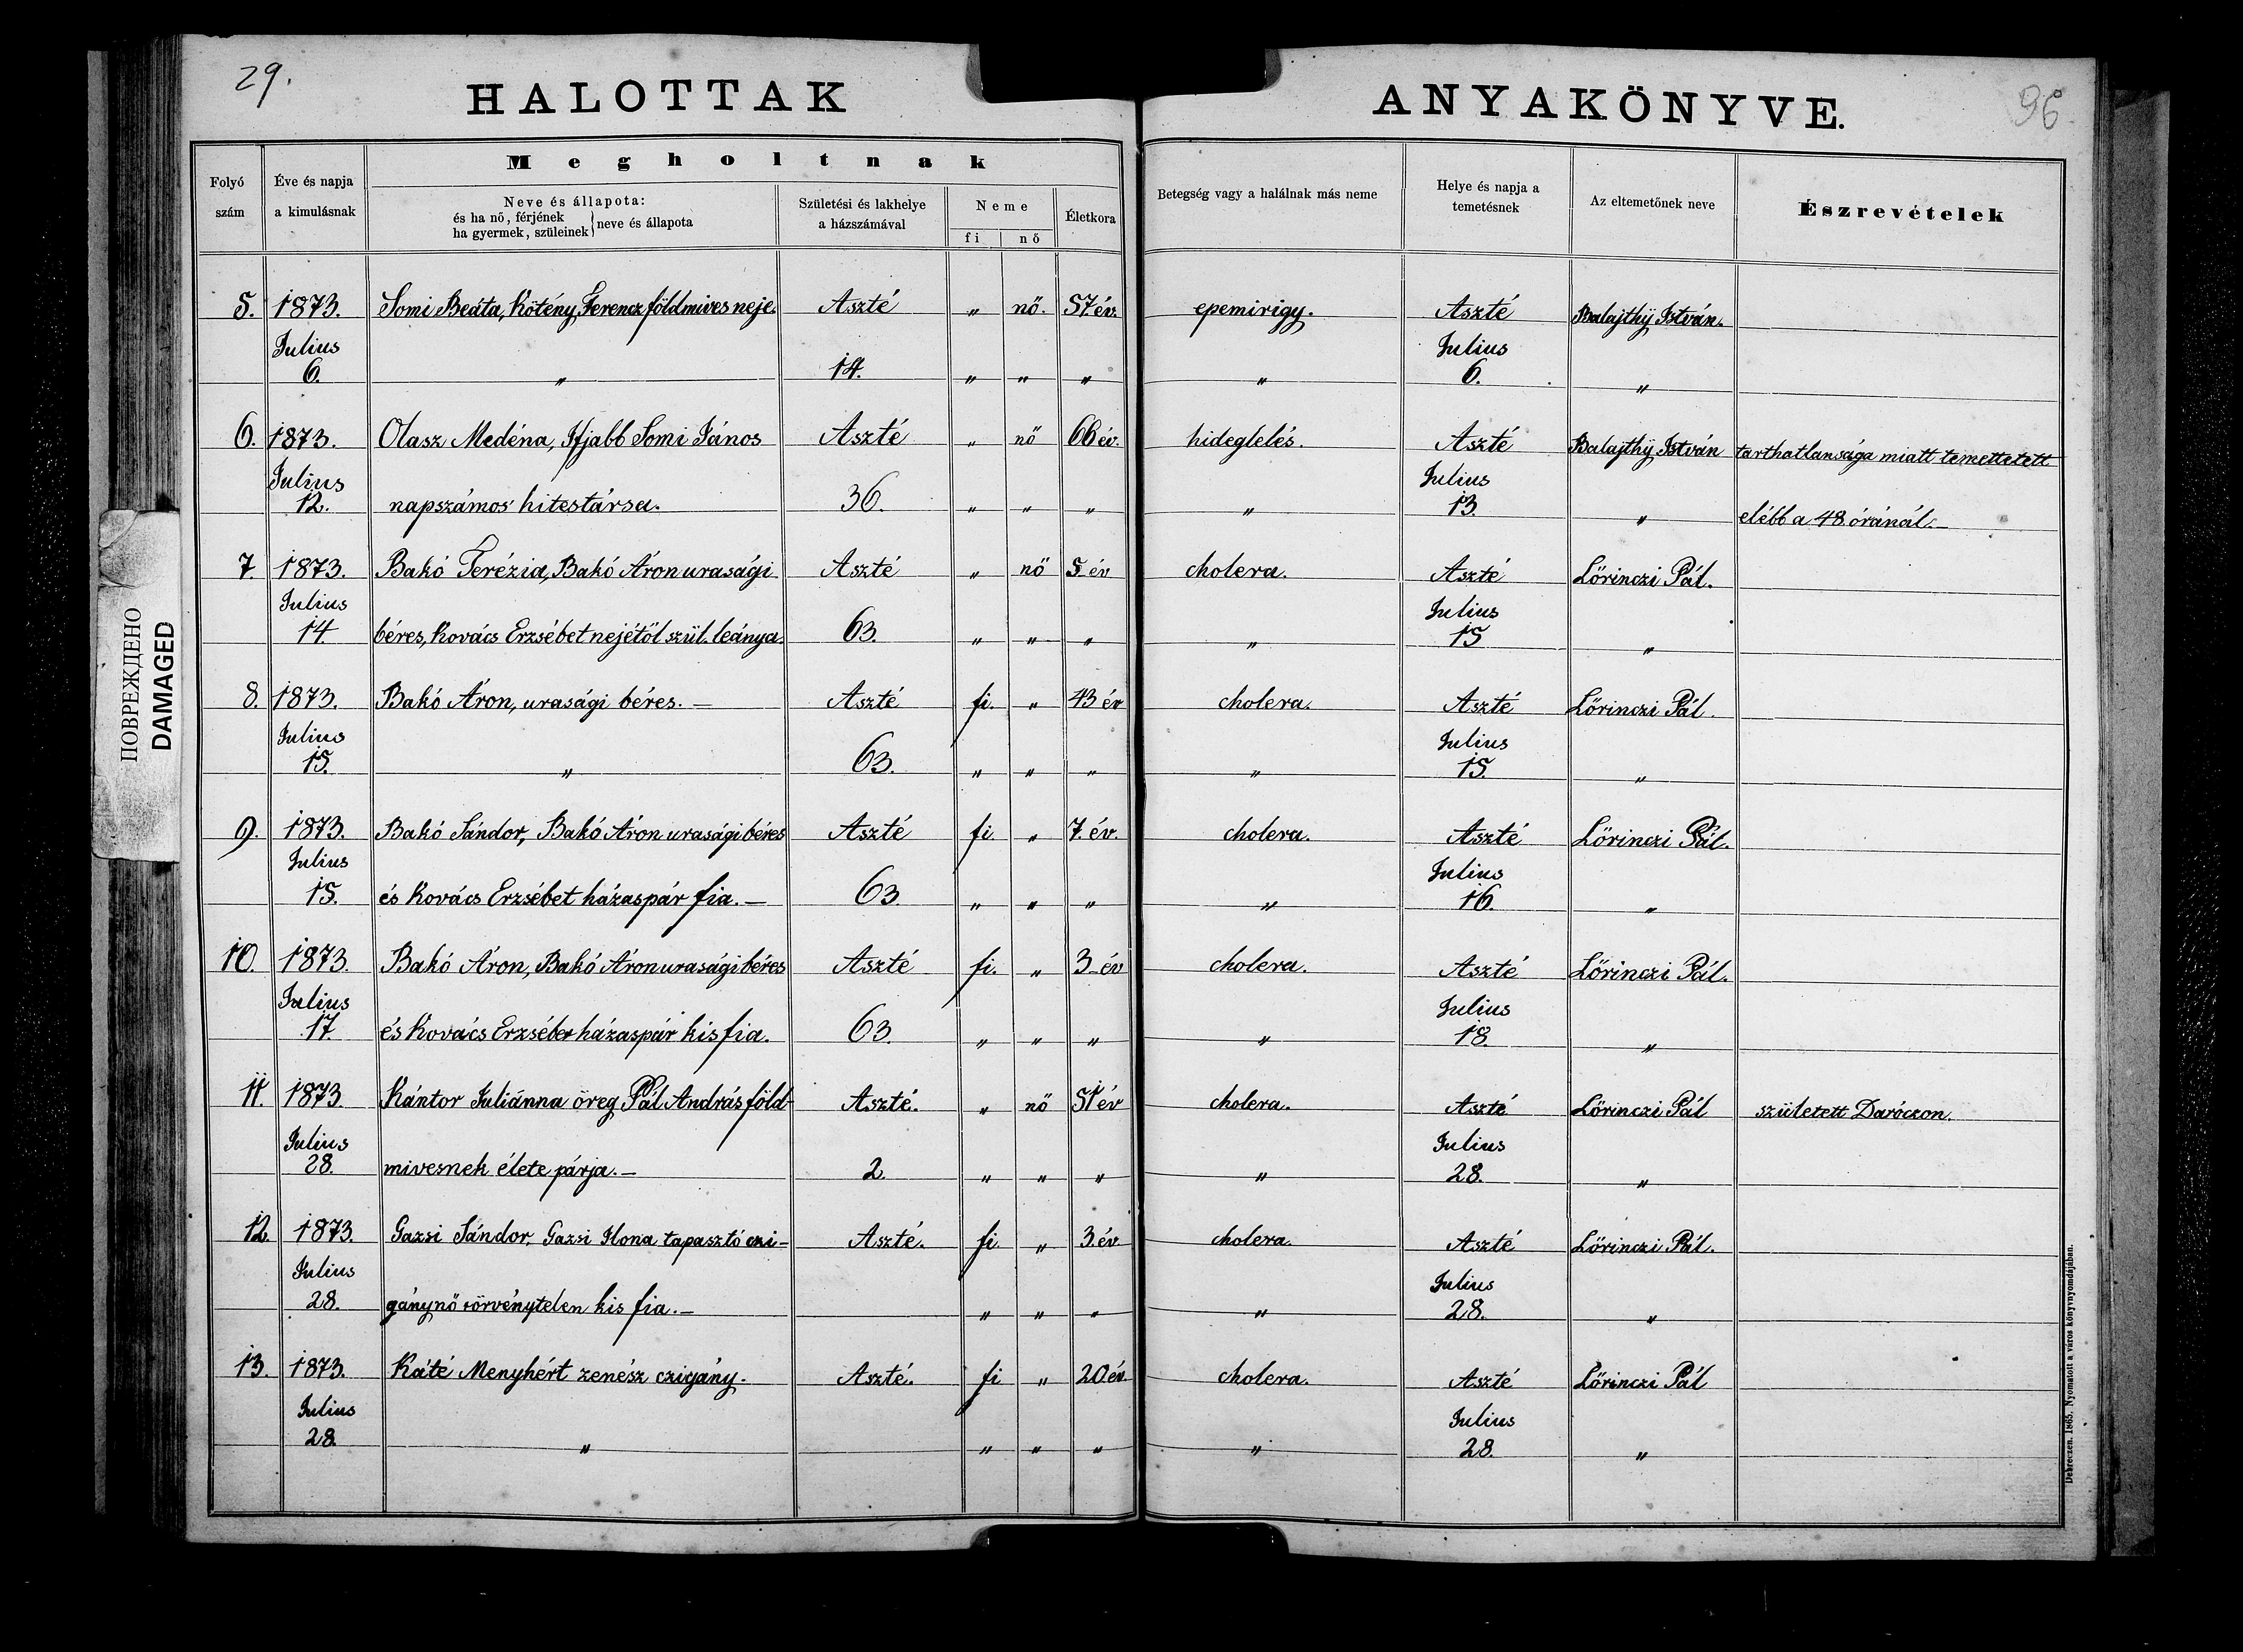 29.
HALOTTAK
ANYAKÖNYVE.
96
Folyó szám
Éve és napja a kimulásnak
Megholtnak
Neve és állapota:
és ha nő, férjének
ha gyermek, szüleinek } neve és állapota
Születési és lakhelye a házszámával
Neme
fi
nő
Életkora
Betegség vagy a halálnak más neme
Helye és napja a temetésnek
Az eltemetőnek neve
Észrevételek
5. 1873. Somi Beáta, Kötény Ferencz földmives neje. Aszté „ nő. 57 év. epemirigy. Aszté Balajthÿ István.
Julius 6. „ 14. „ „ „ „ Julius 6. „
6. 1873. Olasz Medéna, Ifjabb Somi János Aszté „ nő 66 év. hideglelés. Aszté Balajthÿ István tarthatlansága miatt temettetett
Julius 12. napszámos hitestársa. 36. „ „ „ „ Julius 13. „ elébb a 48 óránál.—
7. 1873. Bakó Terézia, Bakó Áron urasági Aszté „ nő 5 év cholera. Aszté Lőrinczi Pál.
Julius 14 béres, Kovács Erzsébet nejétől szül. leánya. 63. „ „ „ „ Julius 15 „
8. 1873. Bakó Áron, urasági béres.— Aszté fi. „ 43 év cholera. Aszté Lőrinczi Pál.
Julius 15. „ 63. „ „ „ „ Julius 15. „
9. 1873. Bakó Sándor, Bakó Áron urasági béres Aszté fi. „ 7. év. cholera. Aszté Lőrinczi Pál.
Julius 15. és Kovács Erzsébet házaspár fia.— 63. „ „ „ „ Julius 16. „
10. 1873. Bakó Áron, Bakó Áron urasági béres Aszté fi. „ 3 év cholera. Aszté Lőrinczi Pál.
Julius 17. és Kovács Erzsébet házaspár kis fia. 63. „ „ „ „ Julius 18. „
11. 1873. Kántor Juliánna öreg Pál András föld- Aszté. „ nő 51 év cholera. Aszté Lőrinczi Pál született Daróczon.
Julius 28. mivesnek élete párja.— 2. „ „ „ „ Julius 28. „
12. 1873. Gazsi Sándor, Gazsi Ilona tapasztó czi- Aszté. fi. „ 3 év. cholera. Aszté Lőrinczi Pál.
Julius 28. gánynő törvénytelen kis fia.— „ „ „ „ Julius 28. „
13. 1873. Káté Menyhért zenész czigány. Aszté. fi „ 20 év. cholera. Aszté Lőrinczi Pál
Julius 28. „ „ „ „ „ Julius 28. „
Debreczen. 1865. Nyomatott a város könyvnyomdájában.
ПОВРЕЖДЕНО
DAMAGED